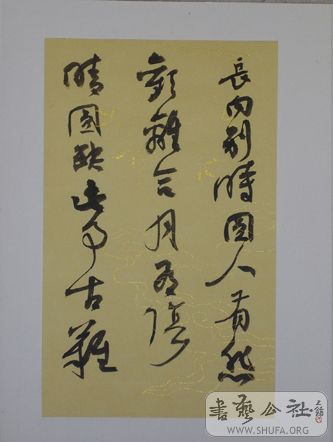 長向别時圓人有悲
歡離合月有陰
晴圓缺此事古難
書藝公社
WWW.SHUFA.ORG